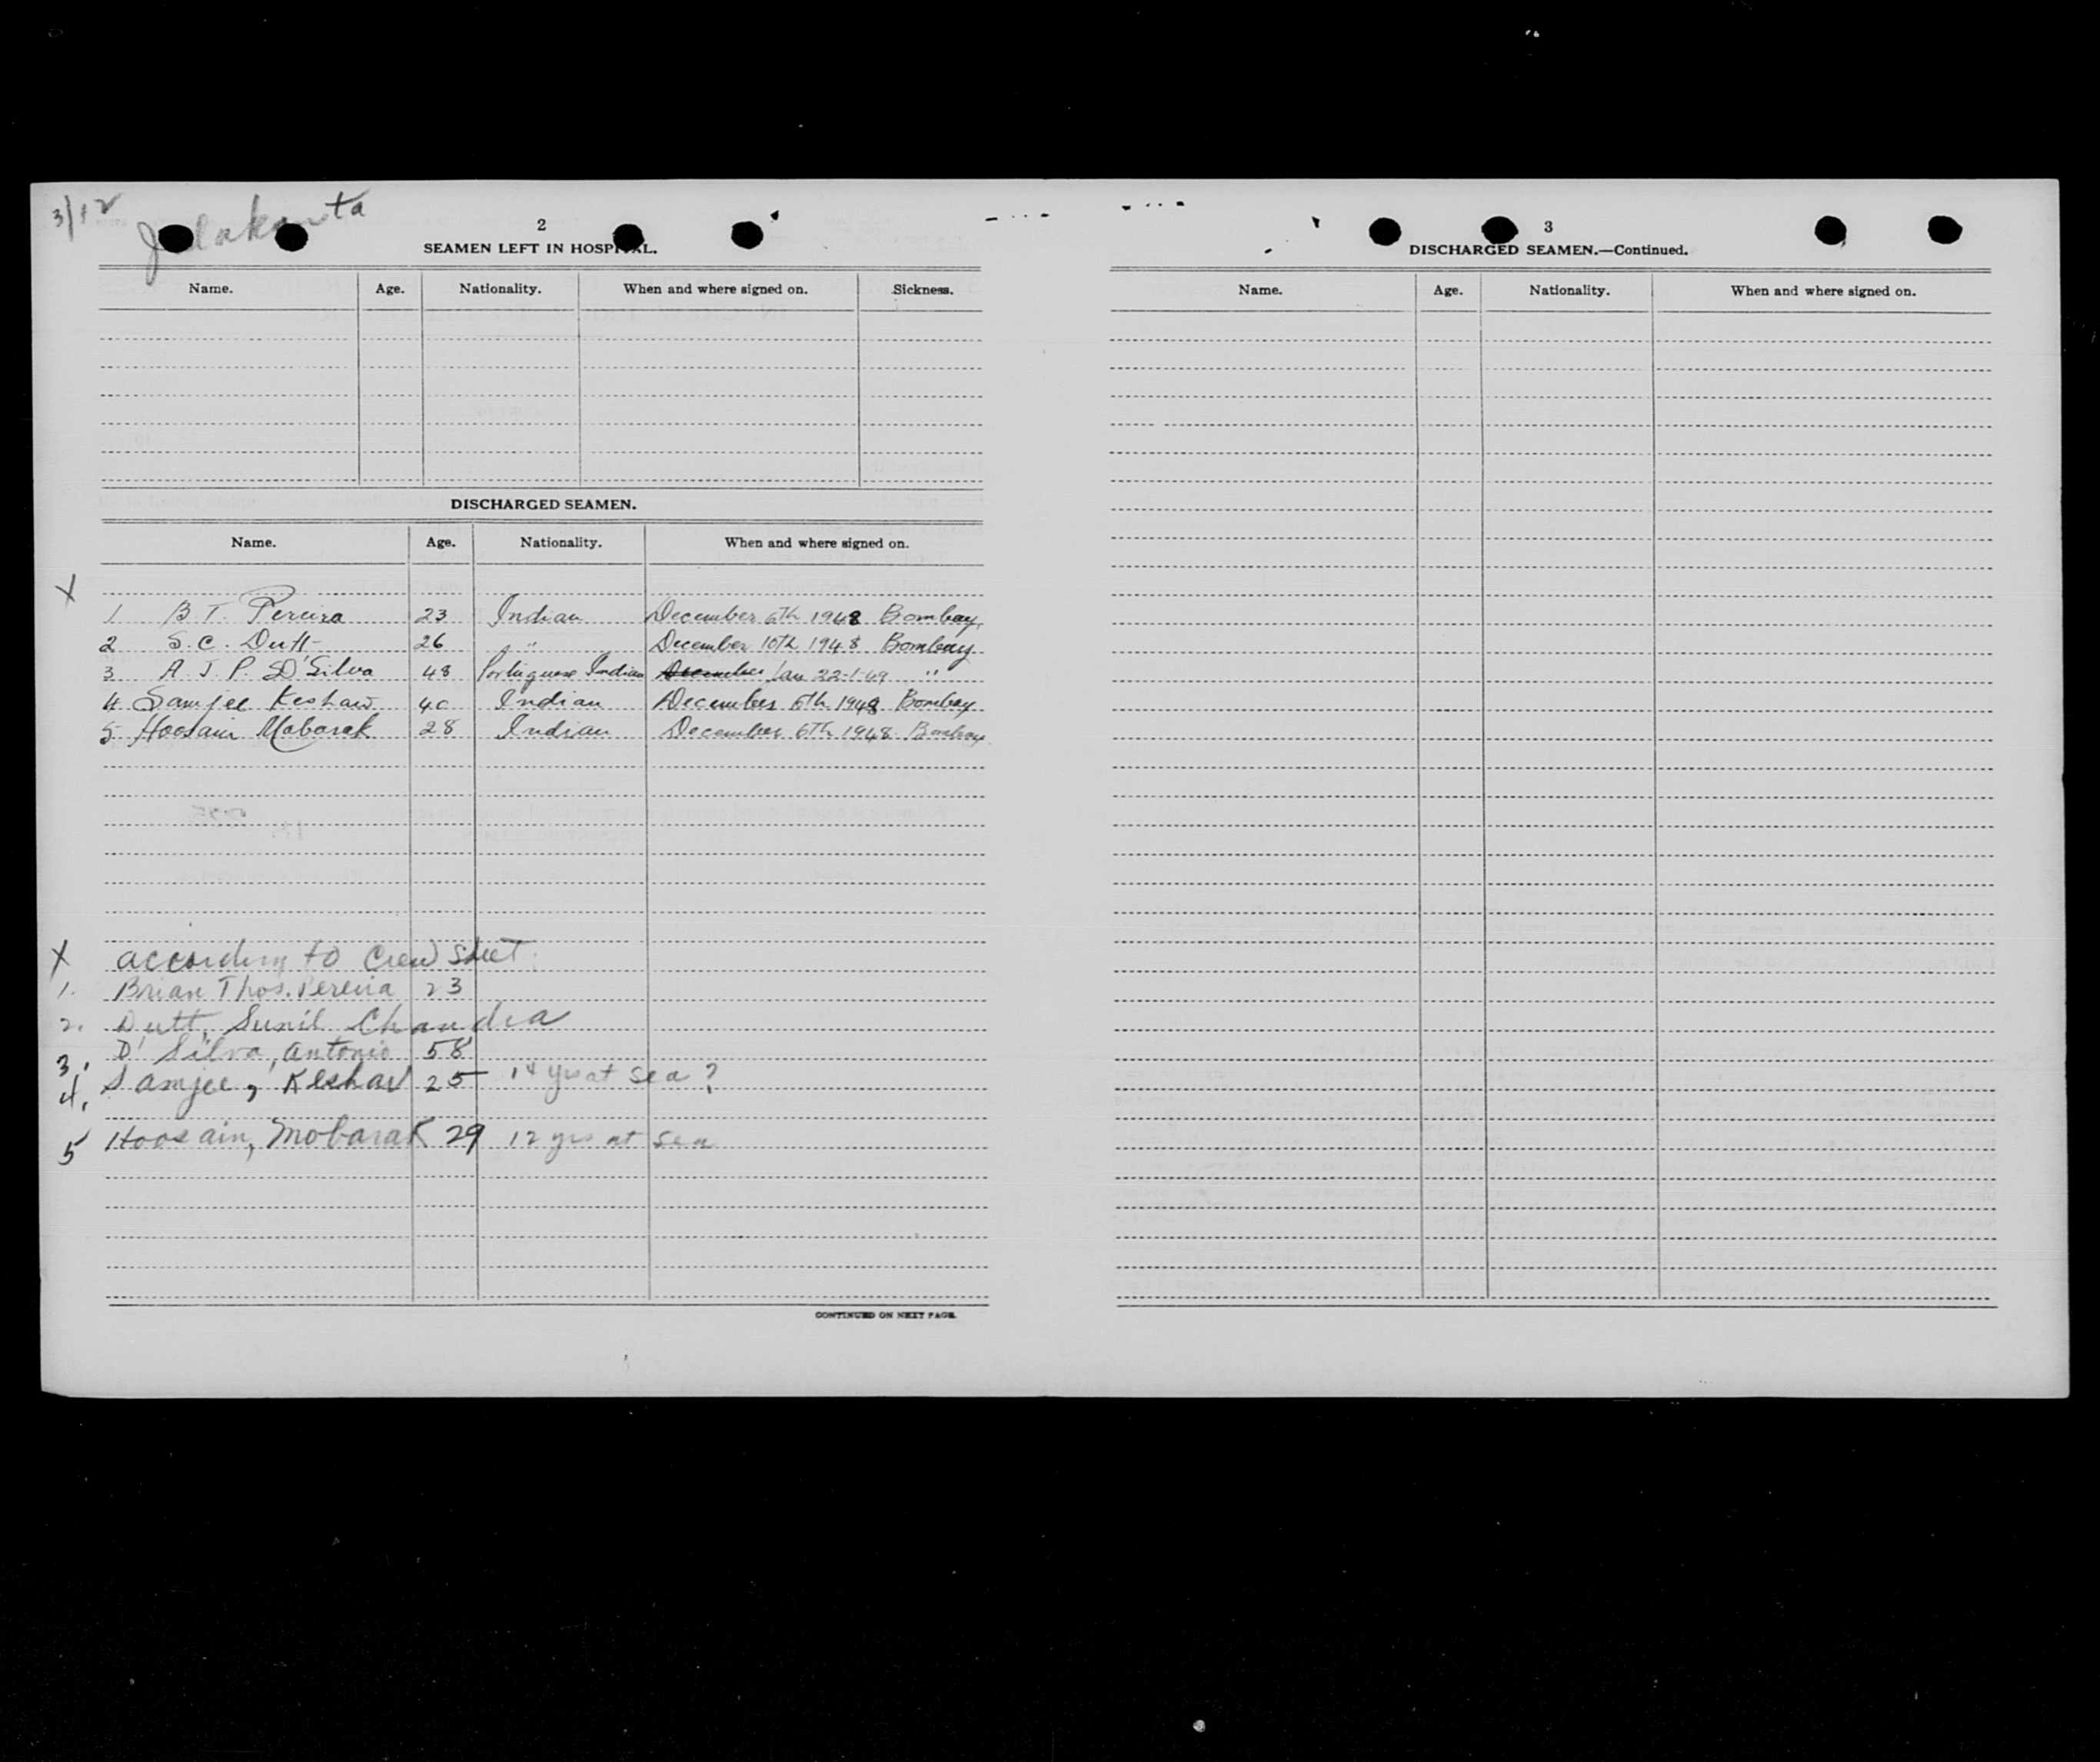 3/12
Jalakanta
2
SEAMEN LEFT IN HOSPITAL.
Name. Age. Nationality. When and where signed on. Sickness.
DISCHARGED SEAMEN.
Name. Age. Nationality. When and where signed on.
X
1 B. T. Pereira 23 Indian December 6th 1948 Bombay.
2 S. C. Dutt 26 " December 10th 1948 Bombay
3 A. J. P. D'Silva 48 Portuguese Indian December Jan 22-1-49 "
4 Samjee Keshaw 40 Indian December 6th 1948 Bombay
5 Hoosain Mobarak 28 Indian December 6th 1948 Bombay
X according to Crew Sheet.
1. Brian Thos. Pereira 23
2. Dutt, Sunil Chandra
3. D'Silva, Antonio 58
4. Samjee, Keshav 25 14 yrs at sea?
5 Hoosain, Mobarak 29 12 yrs at sea
CONTINUED ON NEXT PAGE.
3
DISCHARGED SEAMEN.—Continued.
Name. Age. Nationality. When and where signed on.